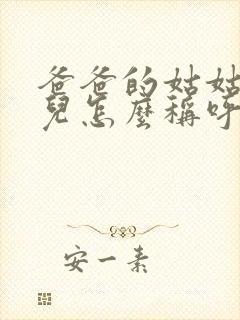 爸爸的姑姑
兒怎麼稱呼
安一素